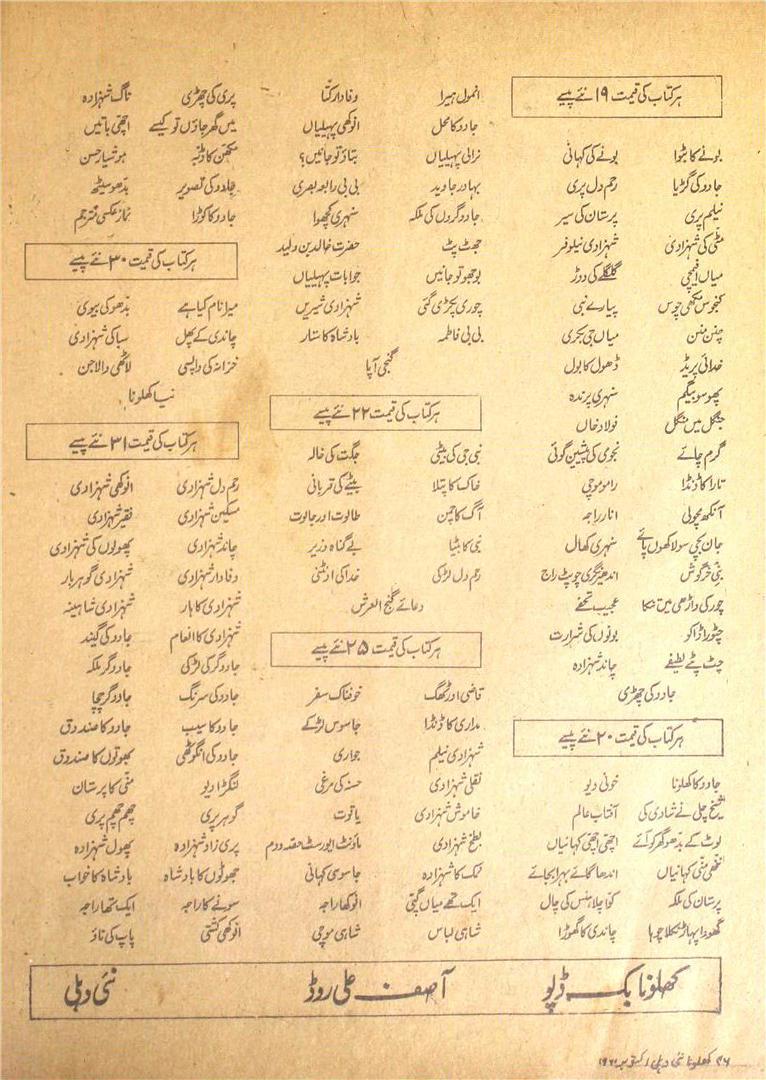 ہر کتاب کی قیمت ۱۹ نئے پیسے
بونے کا بٹوا بونے کی کہانی
جادو کی گڑیا رحم دل پری
نیلم پری پرستان کی سیر
مٹی کی شہزادی شہزادی نیلوفر
میاں افیمچی گلگلے کی دوڑ
کنجوس مکھی چوس پیارے نبی
چنن منن میاں جی بکری
خدائی پریڈ ڈھول کا پول
پھوسو بیگم سنہری پرندہ
جنگل میں منگل فولاد خاں
گرم چائے نجومی کی پیشین گوئی
تارا کا ڈنڈا رامو موچی
آنکھ مچولی انار راجہ
جان بچی سو لاکھوں پائے سنہری کھال
بنی خرگوش اندھیر نگری چوپٹ راج
چور کی داڑھی میں تنکا عجیب تحفے
چٹورا ڈاکو بونوں کی شرارت
چٹ پٹے لطیفے چاند شہزادہ
جادو کی چھڑی
ہر کتاب کی قیمت ۲۰ نئے پیسے
جادو کا کھلونا خونی دیو
شیخ چلی نے شادی کی آفتاب عالم
لوٹ کے بدھو گھر کو آئے اچھی اچھی کہانیاں
ننھی منی کہانیاں اندھا گائے بہرا بجائے
پرستان کی ملکہ کوا چلا ہنس کی چال
کھودا پہاڑ نکلا چوہا چاندی کا گھوڑا
انمول ہیرا وفادار کتا
جادو کا محل انوکھی پہیلیاں
نرالی پہیلیاں بتاؤ تو جانیں؟
بہادر جاوید بی بی رابعہ بصری
جادوگروں کی ملکہ سنہری کچھوا
جھٹ پٹ حضرت خالد بن ولید
بوجھو تو جانیں جوابات پہیلیاں
چوری پکڑی گئی شہزادی شیریں
بی بی فاطمہ بادشاہ کا ستار
گنجی آپا
ہر کتاب کی قیمت ۲۲ نئے پیسے
نبی جی کی بیٹی جگت کی خالہ
خاک کا پتلا بیٹے کی قربانی
آگ کا چمن طالوت اور جالوت
نبی کا بیٹا بے گناہ وزیر
رحم دل لڑکی خدا کی اونٹنی
دعائے گنج العرش
ہر کتاب کی قیمت ۲۵ نئے پیسے
قاضی اور ٹھگ خوفناک سفر
مداری کا ڈنڈا جاسوس لڑکے
شہزادی نیلم جواری
نقلی شہزادی حسنہ کی مرغی
خاموش شہزادی یاقوت
بطخ شہزادی ماؤنٹ ایورسٹ حصہ دوم
نمک کا شہزادہ جاسوسی کہانی
ایک تھے میاں گپی انوکھا راجہ
شاہی لباس شاہی موچی
پری کی چھڑی ناگ شہزادہ
میں گھر جاؤں تو کیسے اچھی باتیں
مکھن کا ڈبہ ہوشیار حسن
جادو کی تصویر بدھو سیٹھ
جادو کا کوڑا نماز عکسی مترجم
ہر کتاب کی قیمت ۳۰ نئے پیسے
میرا نام کیا ہے بدھو کی بیوی
چاندی کے پھل سبا کی شہزادی
خزانہ کی واپسی لاٹھی والا جن
نیا کھلونا
ہر کتاب کی قیمت ۳۱ نئے پیسے
رحم دل شہزادی انوکھی شہزادی
مسکین شہزادی فقیر شہزادی
چاند شہزادی پھولوں کی شہزادی
وفادار شہزادی شہزادی گوہر بار
شہزادی کا ہار شہزادی شاہینہ
شہزادی کا انعام جادو کی گیند
جادوگر کی لڑکی جادوگر ملکہ
جادو کی سرنگ جادوگر چچا
جادو کا سیب جادو کا صندوق
جادو کی انگوٹھی بھوتوں کا صندوق
لنگڑا دیو منی کا پرستان
گوہر پری چھم چھم پری
پری زاد شہزادہ پھول شہزادہ
جھوٹوں کا بادشاہ بادشاہ کا خواب
سونے کا راجہ ایک تھا راجہ
انوکھی کشتی پاپ کی ناؤ
کھلونا بک ڈپو آصف علی روڈ نئی دہلی
۲۶ کھلونا نئی دہلی اکتوبر ۱۹۶۱